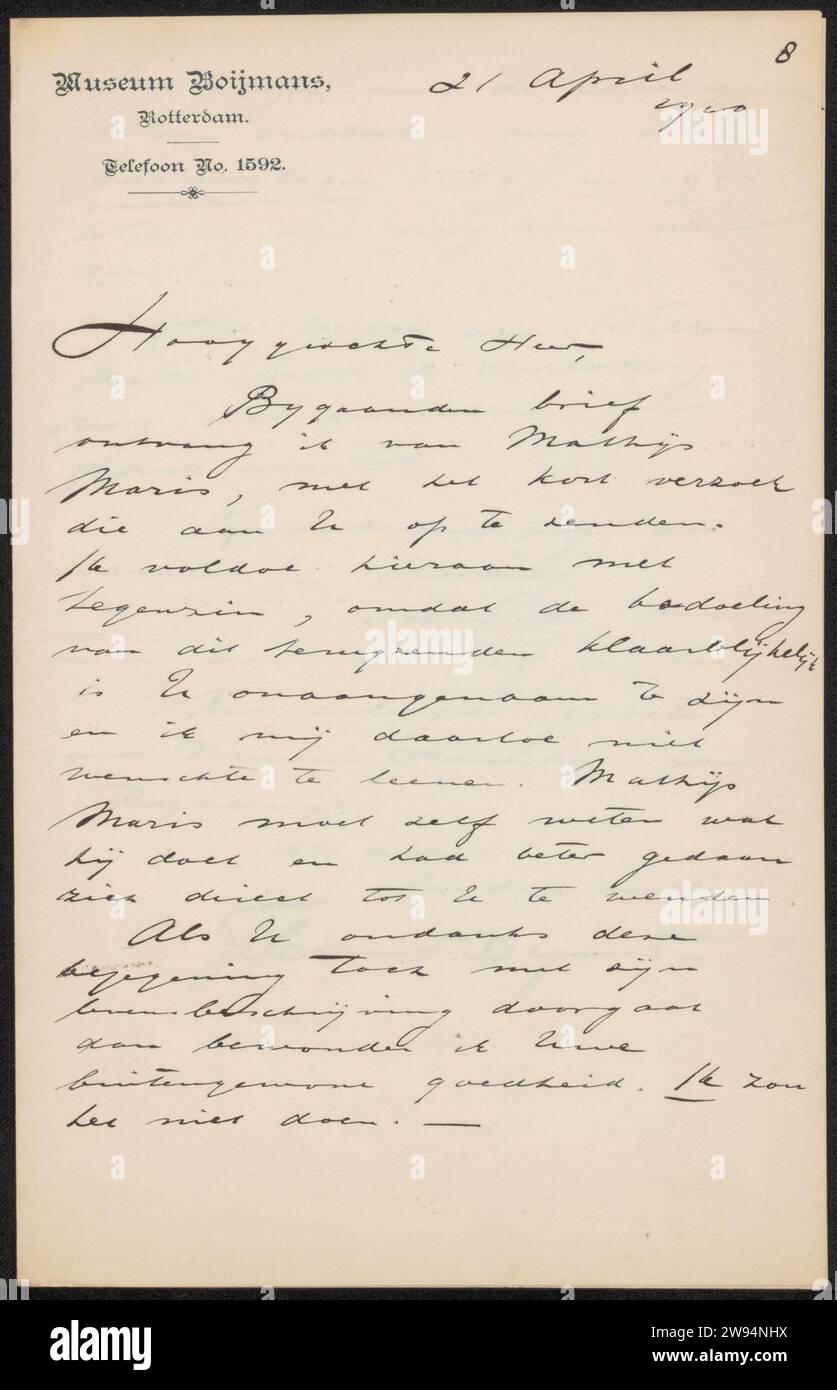 8
Museum Boijmans,
Rotterdam.
Telefoon No. 1592.
21 April
Hooggeachte Heer,
Bygaanden brief
ontvang ik van Mathijs
Maris, met het kort verzoek
die aan U op te zenden.
Ik voldoe hieraan met
tegenzin, omdat de bedoeling
van dit terugzenden klaarblijkelijk
is U onaangenaam te zijn
en ik mij daartoe niet
wenschte te leenen. Mathijs
Maris moet zelf weten wat
hij doet en had beter gedaan
zich direct tot U te wenden
Als U ondanks deze
bejegening toch met zijn
levensbeschrijving doorgaat
dan bewonder ik Uwe
buitengewone goedheid. Ik zou
het niet doen. —
alamy
Image ID: 2W94NHX
www.alamy.com